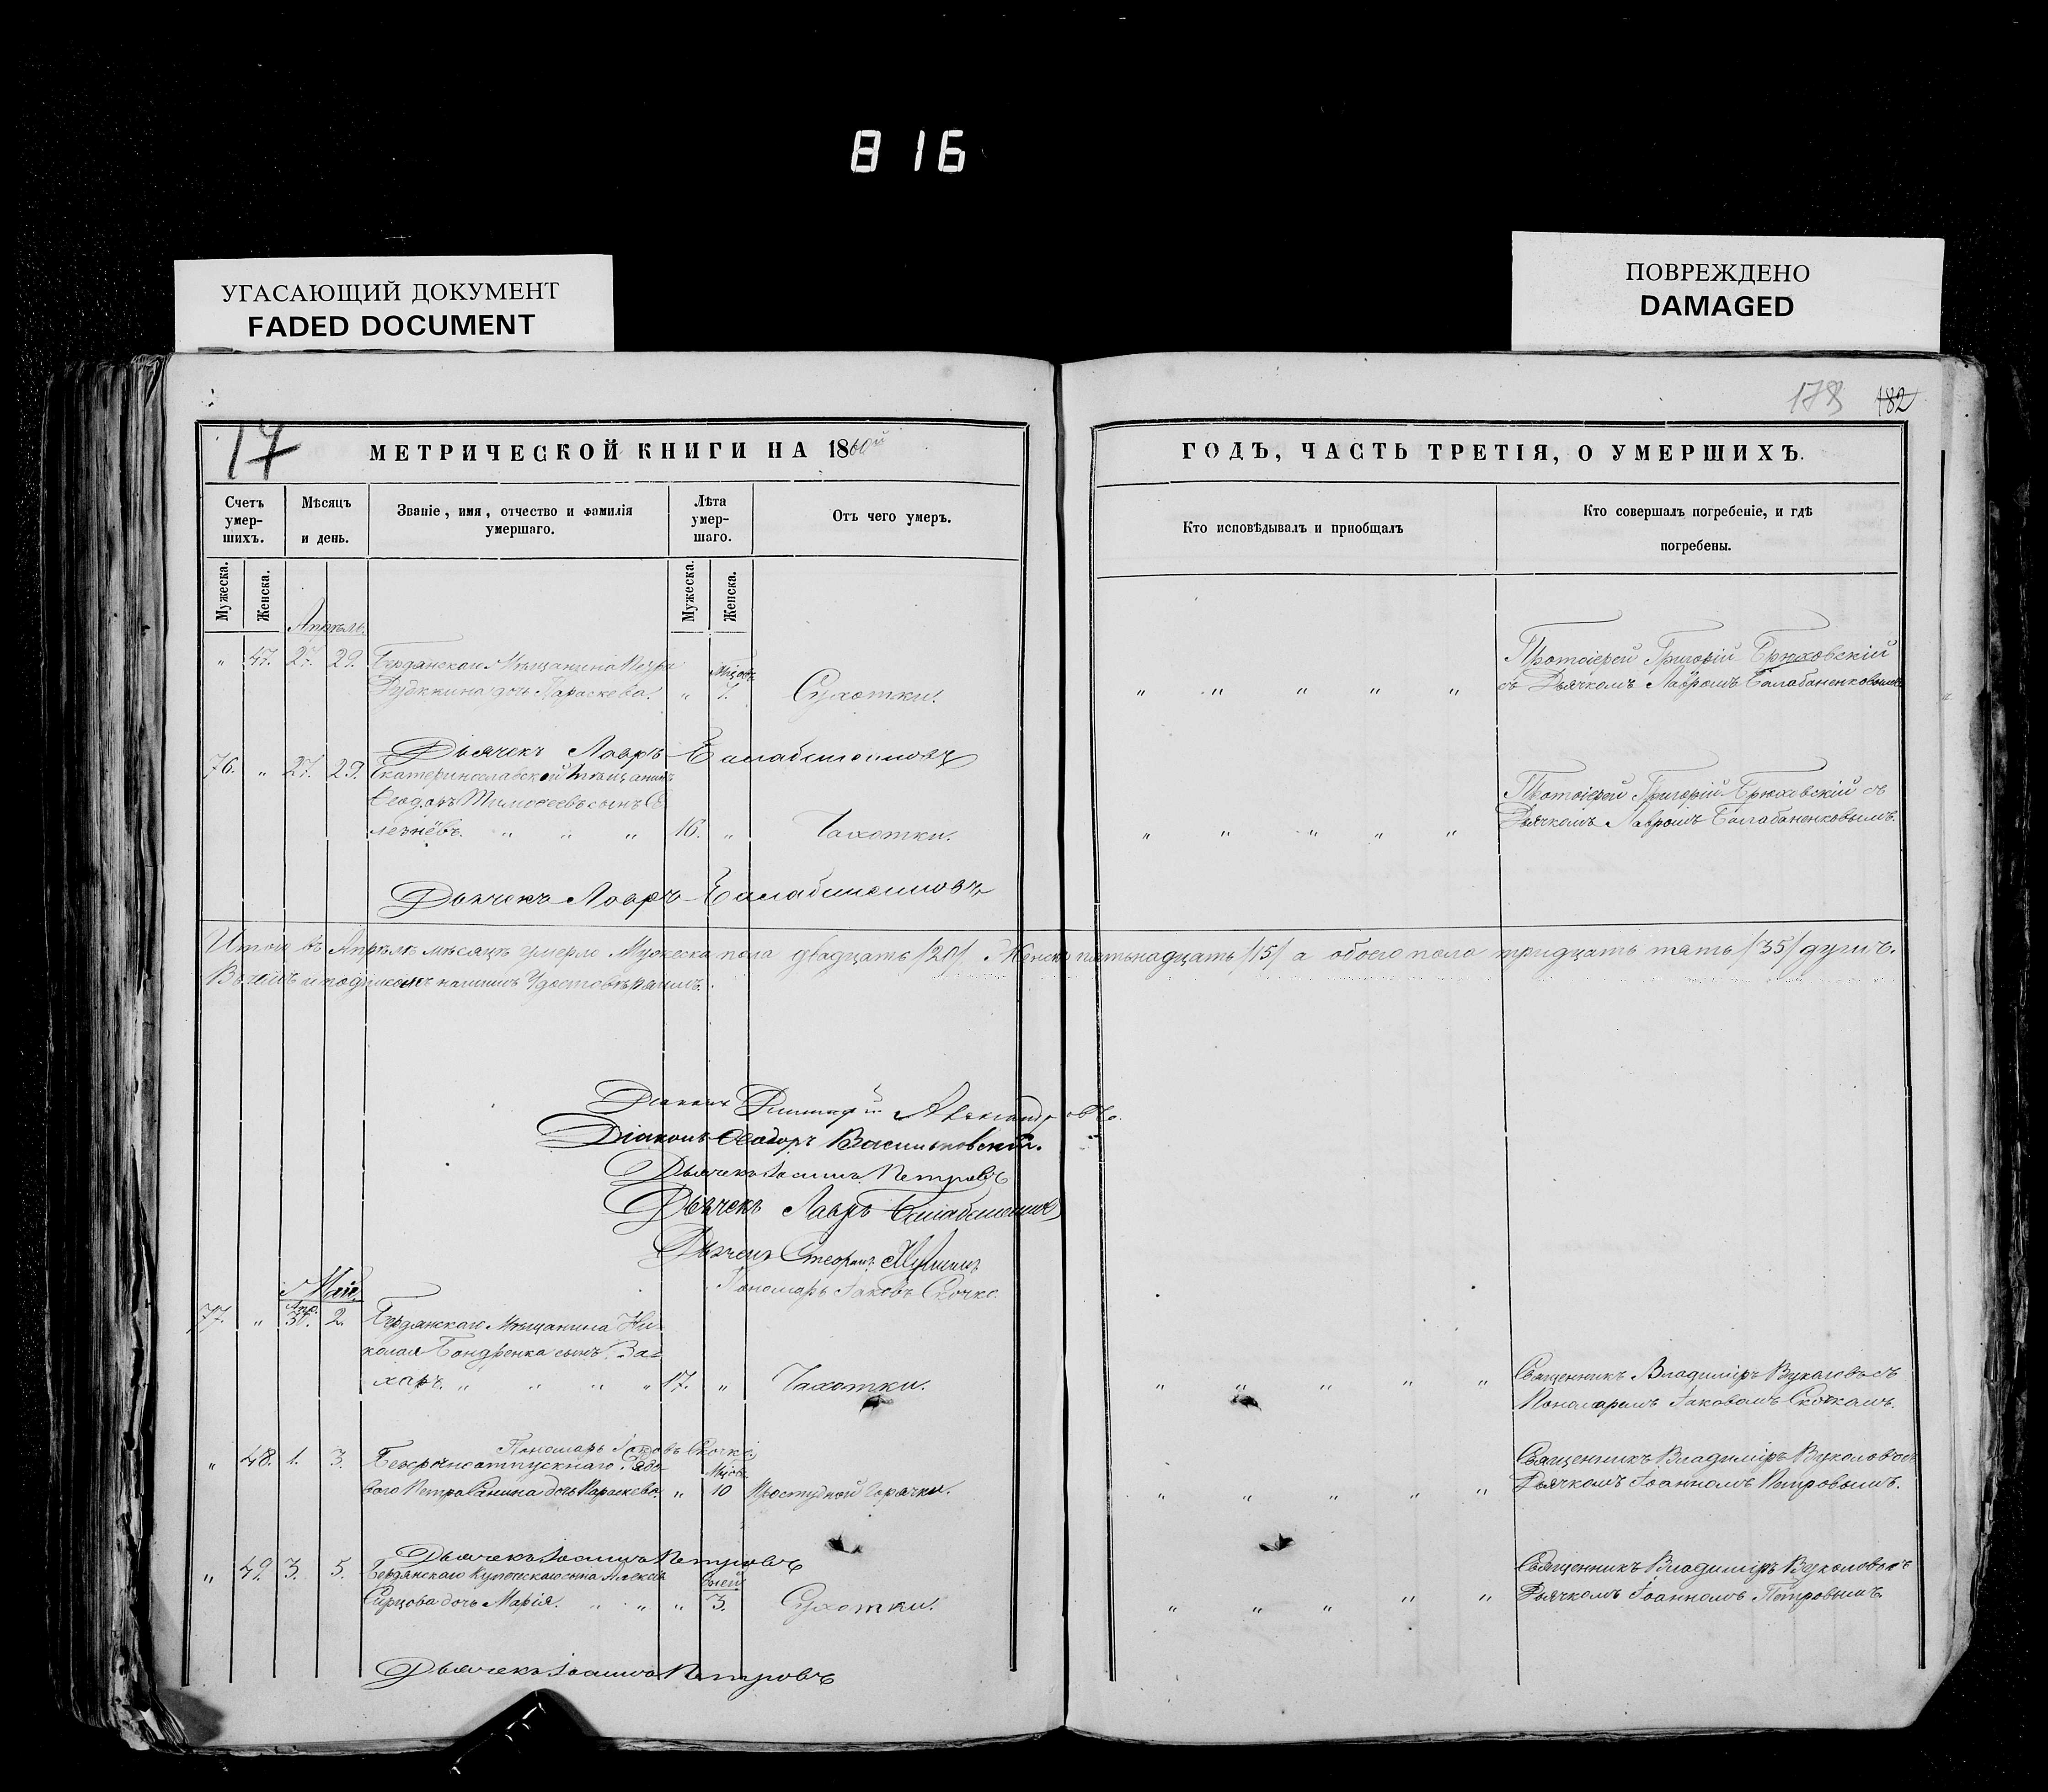 816
УГАСАЮЩИЙ ДОКУМЕНТ
FADED DOCUMENT
ПОВРЕЖДЕНО
DAMAGED
178 182
17
МЕТРИЧЕСКОЙ КНИГИ НА 1860й
ГОДЪ, ЧАСТЬ ТРЕТІЯ, О УМЕРШИХЪ.
Счетъ умер-шихъ.
Мѣсяцъ и день.
Званіе, имя, отчество и фамилія умершаго.
Лѣта умер-шаго.
Отъ чего умеръ.
Кто исповѣдывалъ и пріобщалъ
Кто совершалъ погребеніе, и гдѣ погребены.
Мужеска.
Женска.
Мужеска.
Женска.
Апрѣль.
" 47. 27. 29. Бердянскаго Мѣщанина
дочь Параскева. " Мцовъ 7. Сухотки. " " " " "
Протоіерей Григорій Брюховскій
съ Дьячкомъ Лавромъ Балабаненковымъ
Дьячекъ Лавръ Балабаненковъ
76. " 27. 29. Екатеринославской Мѣщанинъ
Ѳеодоръ Тимоѳеевъ сынъ Се
лезнёвъ. " " " 16. " Чахотки. " " " " "
Протоіерей Григорій Брюховскій съ
Дьячкомъ Лавромъ Балабаненковымъ.
Дьячекъ Лавръ Балабаненковъ
Итого въ Апрѣлѣ мѣсяцѣ умерло Мужеска пола двадцать /20/. Женска пятьнадцать /15/ а обоего пола тридцать пять /35/ душъ.
В чемъ и подписомъ нашимъ Удостовѣряемъ.
Діаконъ Димитрій Александровъ.
Діаконъ Ѳеодоръ Васильковскій.
Дьячекъ Іоаннъ Петровъ
Дьячекъ Лавръ Балабаненковъ
Дьячекъ Стефанъ
Пономарь Іаковъ Скочко.
Май.
77. " Апр. 30. 2. Бердянскаго Мѣщанина Ни-
колая Бондренка сынъ За=
харъ. " " " " 17. " Чахотки. " " " " "
Священникъ Владиміръ Вуколовъ съ
Пономаремъ Іаковомъ Скочкомъ.
Пономарь Іаковъ Скочко.
" 48. 1. 3. Безсрочноотпускнаго Рядо-
ваго Петра Санина дочь Параскева. " Мцовъ 10 Простудной горячки. " " " " "
Священникъ Владиміръ Вуколовъ съ
Дьячкомъ Іоанномъ Петровымъ.
Дьячекъ Іоаннъ Петровъ
" 49. 3. 5. Бердянскаго Купеческаго сына Алексѣя
Сирцова дочь Марія. " " " Дней 3. Сухотки. " " " " "
Священникъ Владиміръ Вуколовъ съ
Дьячкомъ Іоанномъ Петровымъ
Дьячекъ Іоаннъ Петровъ